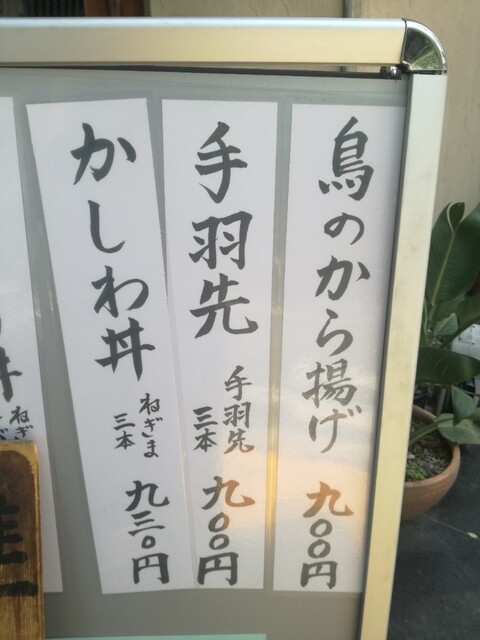 鳥のから揚げ
九〇〇円
手羽先
手羽先
三本
九〇〇円
かしわ丼
ねぎま
三本
九三〇円
丼
ねぎ